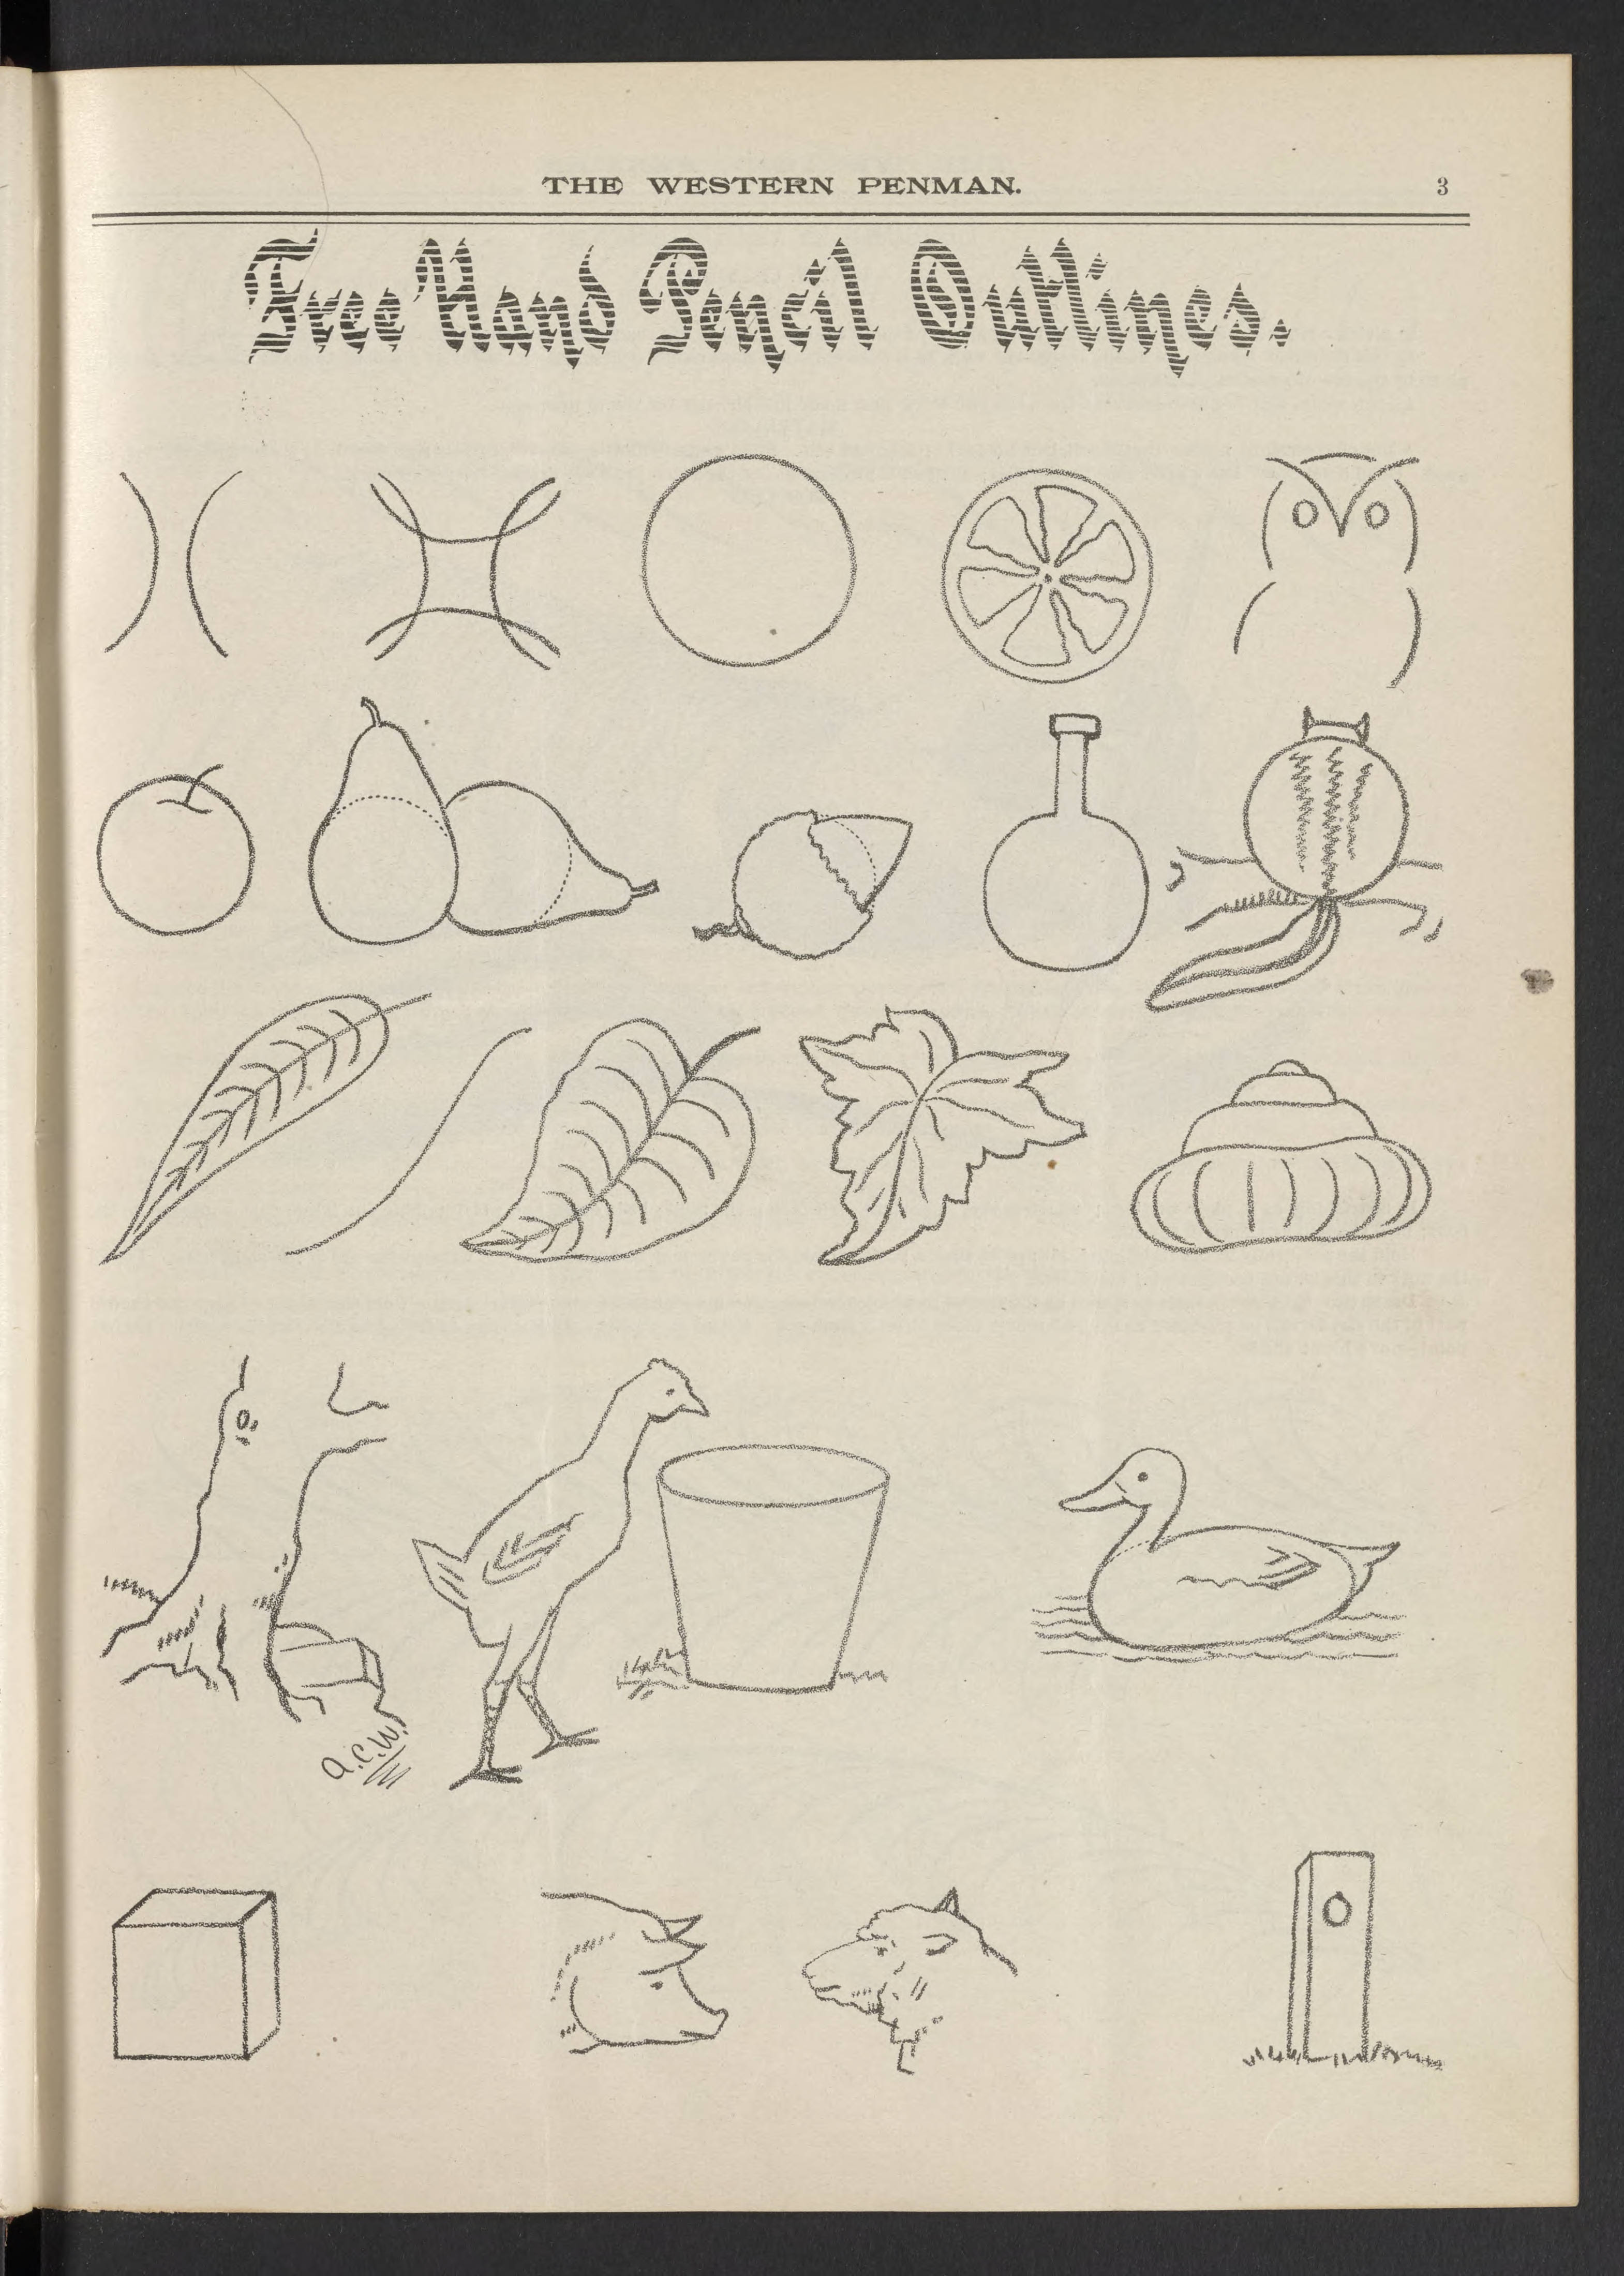 THE WESTERN PENMAN. 3
Free Hand Pencil Outlines.
a.c.w.